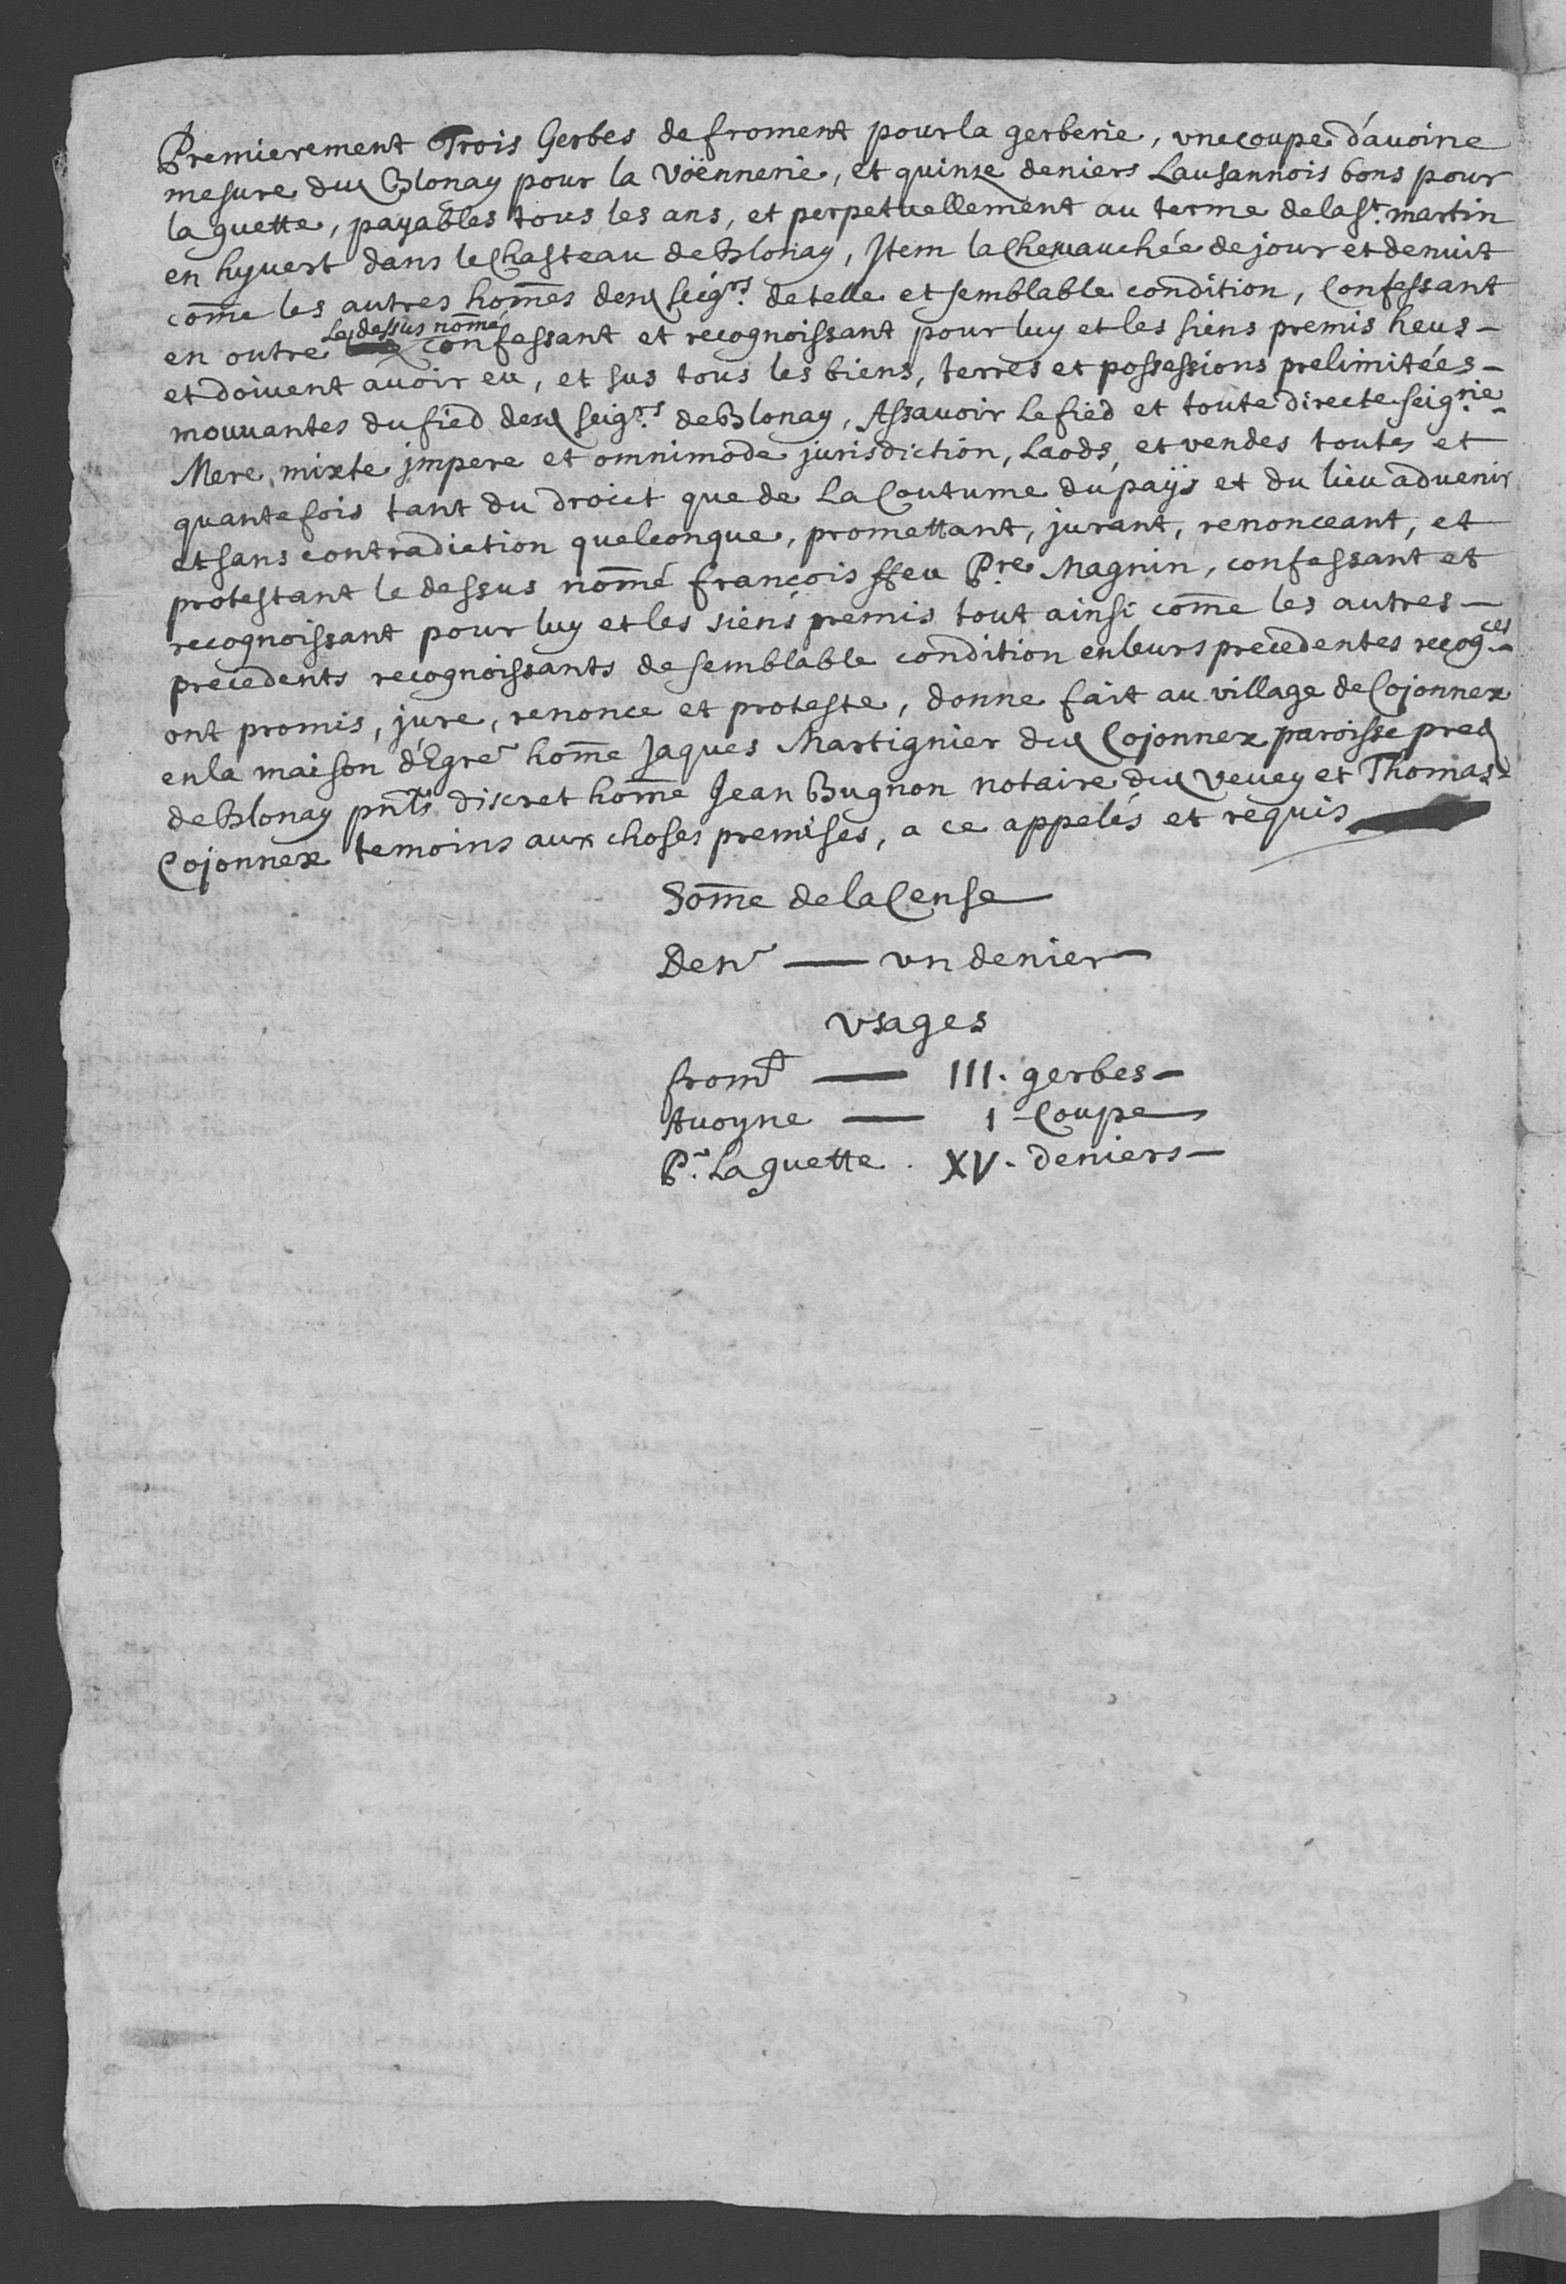 Premierement Trois Gerbes de froment pour la gerberie, vne coupe d'auoine
mesure dud Blonay pour la Voënnerie, et quinze deniers Lausannois bons pour
la guette, payables tous les ans, et perpetuellement au terme de la St. martin
en hyuert dans le Chasteau de Blonay, Item la Cheuauchée de jour et de nuit
com̄e les autres hom̄es desd Seigrs. de telle et semblable condition, Confessant
Le dessus nom̄é
en outre confessant et recognoissant pour luy et les siens premis heus -
et doivent auoir eu, et sus tous les biens, terres et possessions prelimitées -
mouuantes du fied desd Seigrs. de Blonay, Assavoir Le fied et toute directe seigrie.
Mere, mixte jmpere et omnimode jurisdiction, Laods, et vendes toutes et
quantefois tant du droict que de La Coutume du payis et du lieu aduenir
et sans contradiction quelconque, promettant, jurant, renonceant, et
protestant le dessus nom̄é françois ffeu Pre. Magnin, confessant et
recognoissant pour luy et les siens premis tout ainsi com̄e les autres -
precedents recognoissants de semblable condition en leurs precedentes recogces. -
ont promis, jure, renonce et proteste, donne fait au village de Cojonnex
en la maison d'Egre hom̄e Jaques Martignier dud Cojonnex paroisse pred
de Blonay pn̄ts discret hom̄e Jean Bugnon notaire dud Veuey et Thomas -
Cojonnex temoins aux choses premises, a ce appelés et requis
Som̄e de la Cense
Denr — vn denier
vsages
fromt — III. gerbes -
Auoyne — 1 Coupe
Pr. La guette . XV. deniers -